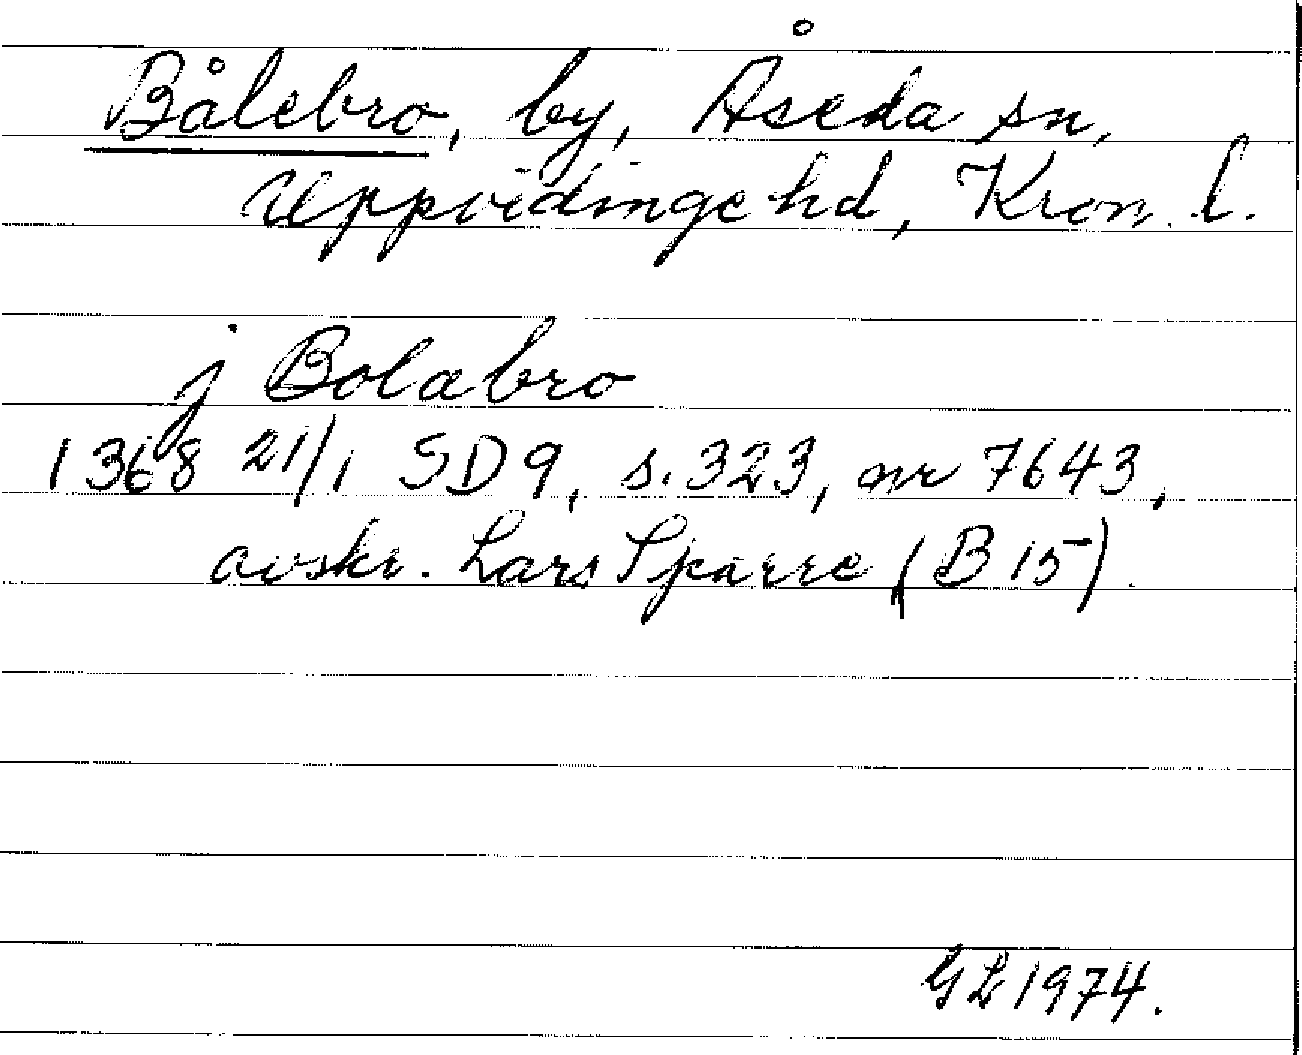 Bålebro, by, Åseda sn,
Uppvidinge hd, Kron. l.
j Bolabro
1368 21/1 SD 9, s. 323, nr 7643,
avskr. Lars Sparre (B 15).
GL 1974.